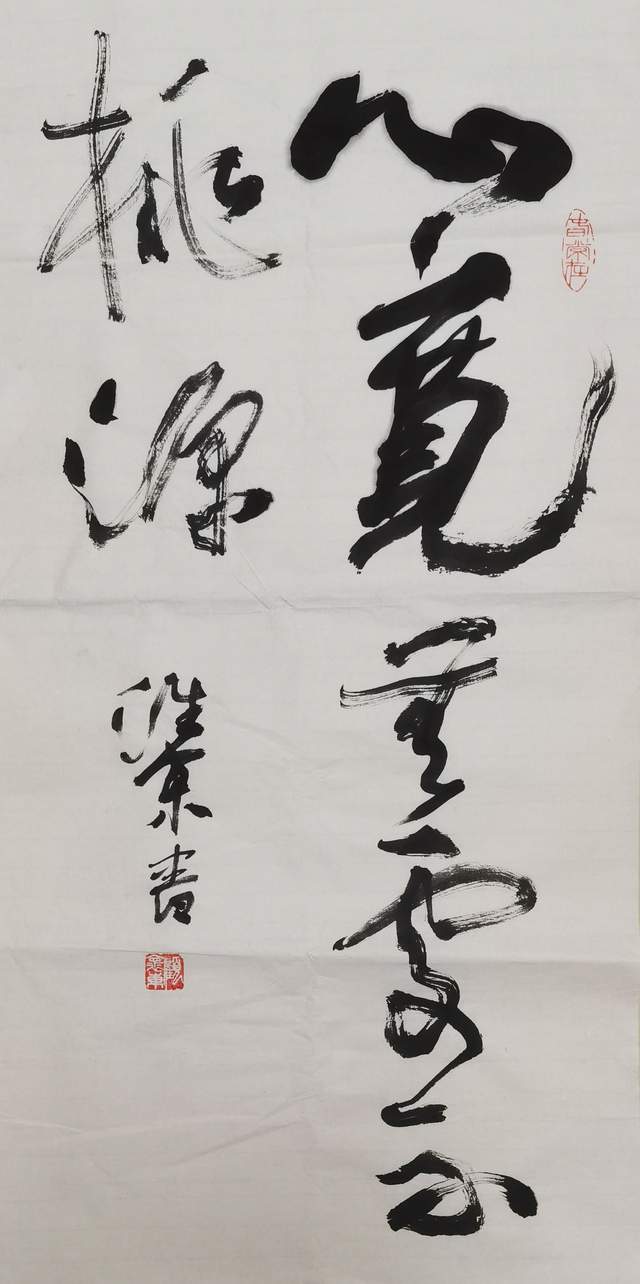 心寬無處不
桃源
書